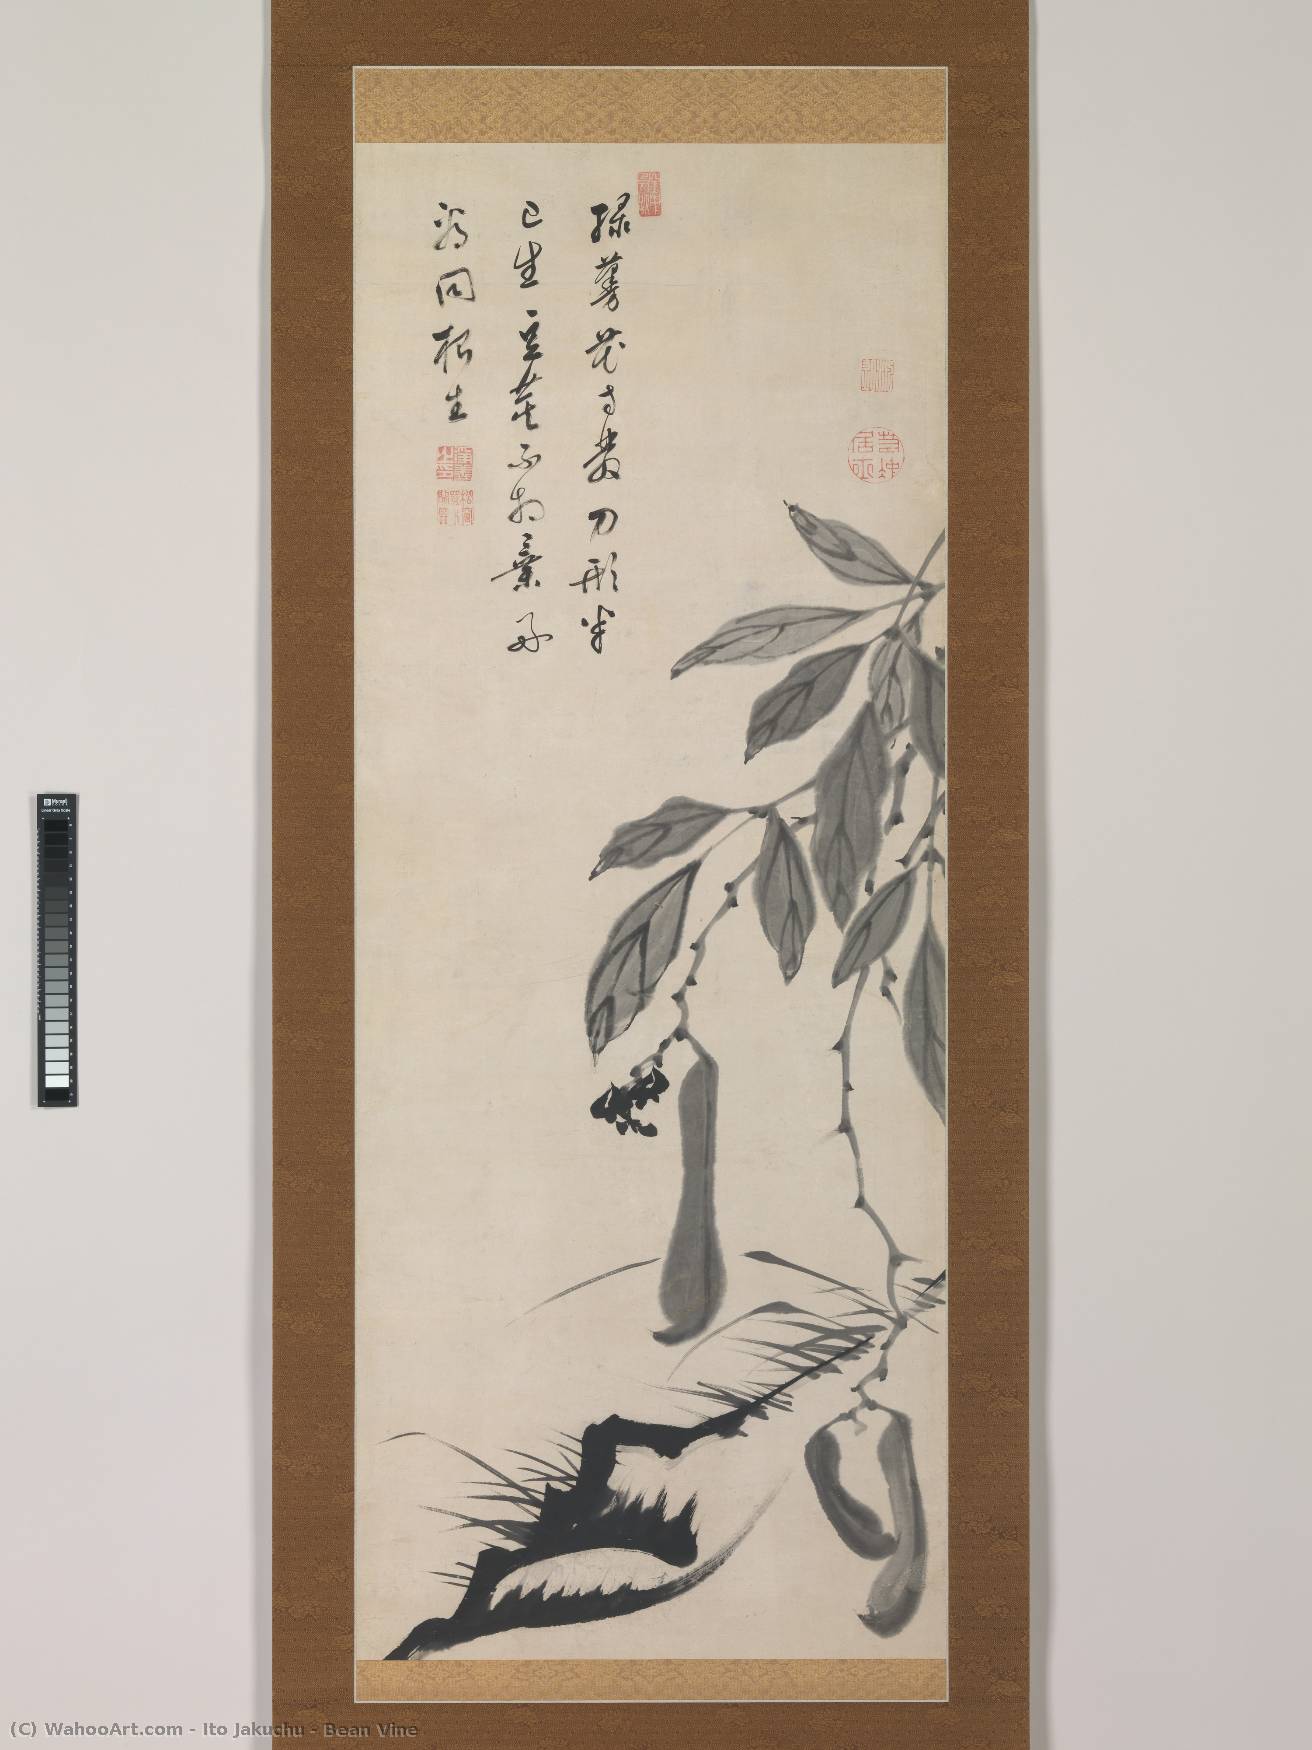 緑蔓花方發刀形半
已生豆萁不相棄好
同根生
若冲居士
(C) WahooArt.com - Ito Jakuchu - Bean Vine